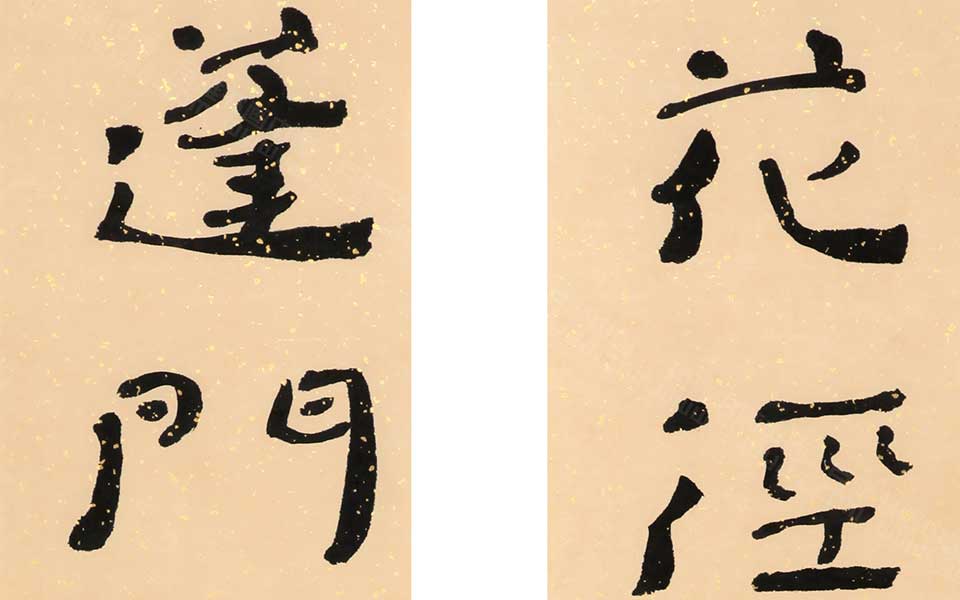 花徑
蓬門